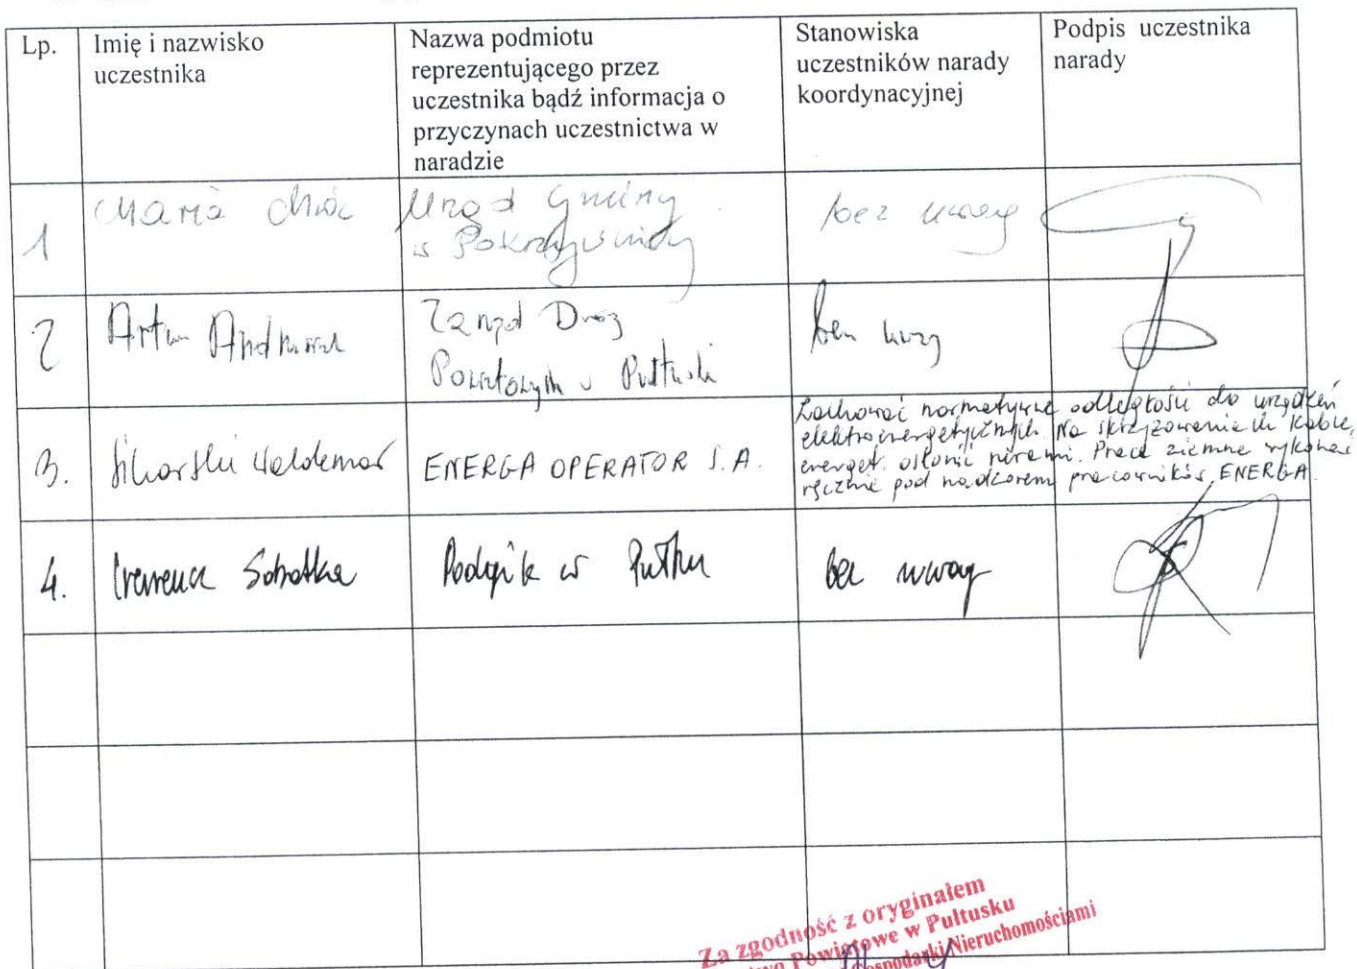 Lp.
Imię i nazwisko
uczestnika
Nazwa podmiotu
reprezentującego przez
uczestnika bądź informacja o
przyczynach uczestnictwa w
naradzie
Stanowiska
uczestników narady
koordynacyjnej
Podpis uczestnika
narady
1
Maria
Urząd Gminy
w Pokrzywnicy
bez uwag
2
Artur
Zarząd Dróg
Powiatowych w Pułtusku
bez uwag
3.
Sikorski Waldemar
ENERGA OPERATOR S.A.
Zachować normatywne odległości do urządzeń
elektroenergetycznych. Na skrzyżowaniach kable
energet. osłonić rurami. Prace ziemne wykonać
ręcznie pod nadzorem pracowników ENERGA
4.
Sobotka
w
bez uwag
Za zgodność z oryginałem
Powiatowe w Pułtusku
Gospodarki Nieruchomościami